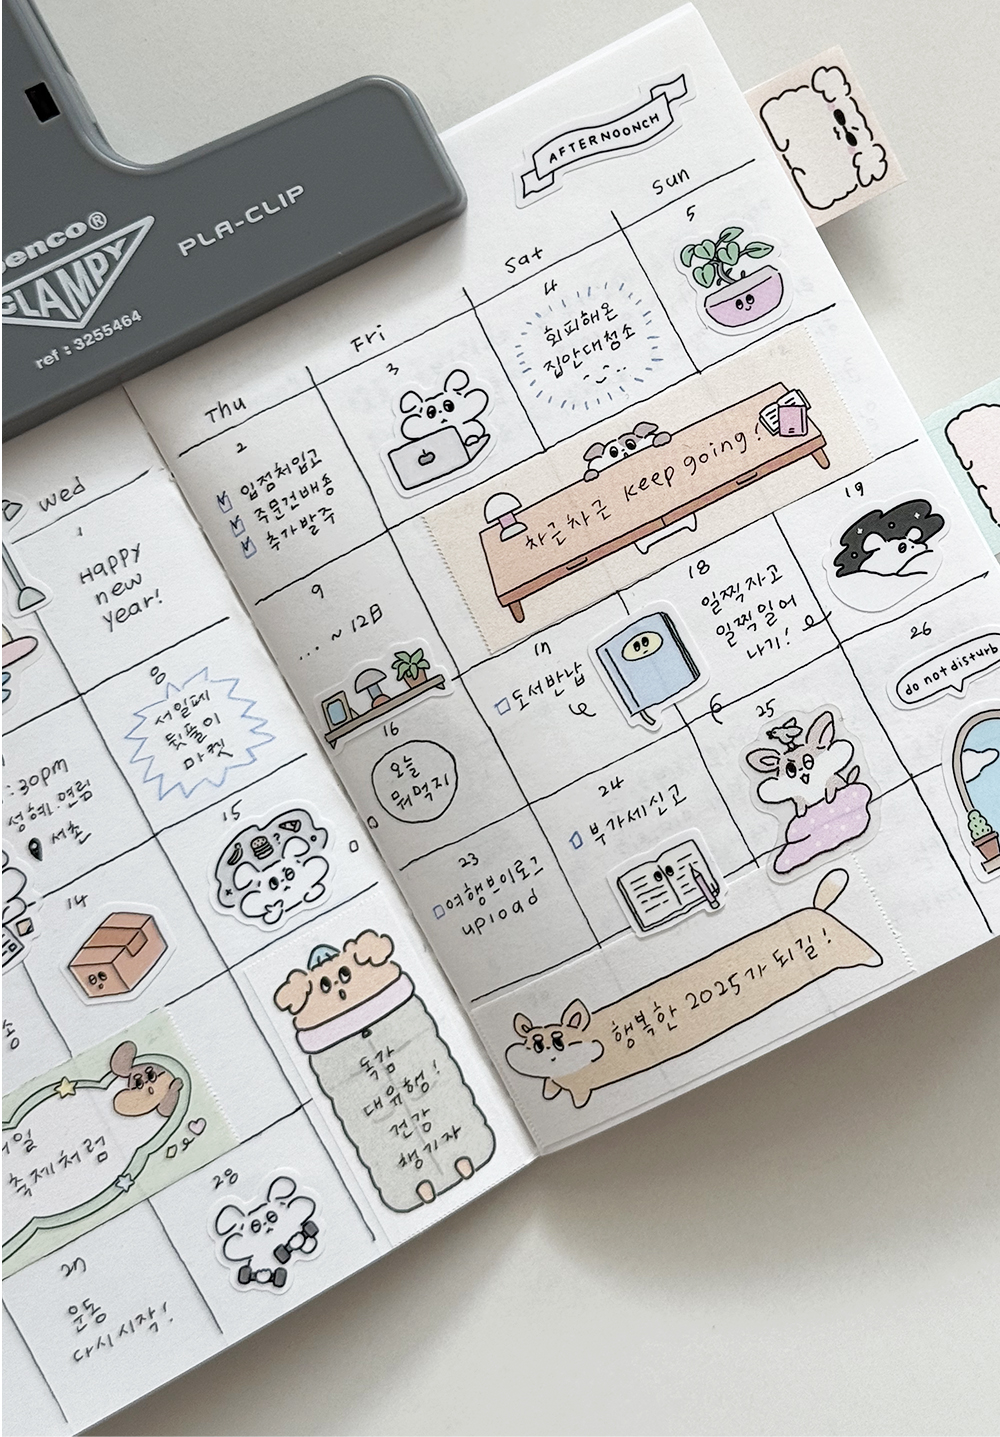 penco®
CLAMPY
PLA-CLIP
ref : 3255464
AFTERNOONCH
Wed
Thu
Fri
Sat
Sun
1
Happy
new
year!
2
입점처입고
주문건배송
추가발주
3
4
회피해온
집안대청소
5
차근차근 keep going!
8
서일페
뒷풀이
마켓
:30pm
성혜.연림
서촌
9
~12日
...
14
15
16
오늘
뭐먹지
17
도서반납
18
일찍자고
일찍일어
나기!
19
23
여행브이로그
upload
24
부가세신고
25
26
do not disturb
독감
대유행!
건강
챙기자
행복한 2025가 되길!
축제처럼
27
운동
다시시작!
28